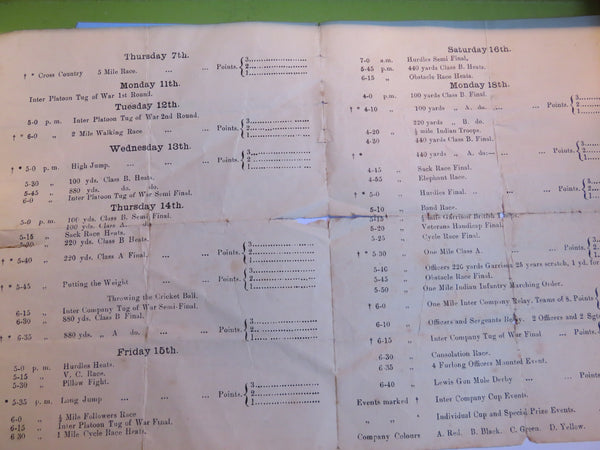 Thursday 7th.
† * Cross Country 5 Mile Race. ... ... Points. { 3. 2. 1.
Monday 11th.
Inter Platoon Tug of War 1st Round.
Tuesday 12th.
5-0 p. m. Inter Platoon Tug of War 2nd Round.
† * 6-0 „ 2 Mile Walking Race ... ... Points. { 3. 2. 1.
Wednesday 13th.
† * 5-0 p. m. High Jump. ... ... ... Points. { 3. 2. 1.
5-30 „ 100 yds. Class B. Heats.
5-45 „ 880 yds. do. do.
6-0 „ Inter Platoon Tug of War Semi Final.
Thursday 14th.
5-0 p.m. 100 yds. Class B. Final.
100 yds. Class A. do
5-15 „ Sack Race Heats.
5-30 „ 220 yds. Class B Heats.
† * 5-40 „ 220 yds. Class A Final. ... Points. { 3. 2. 1.
† * 5-45 „ Putting the Weight ... ... Points. { 3. 2. 1.
Throwing the Cricket Ball.
6-15 „ Inter Company Tug of War Semi-Final.
6-30 „ 880 yds. Class B Final.
† * 6-35 „ 880 yds. „ A do. ... ... Points. { 3. 2. 1.
Friday 15th.
5-0 p. m. Hurdles Heats.
5-15 „ V. C. Race.
5-30 „ Pillow Fight.
* 5-35 p.m. Long Jump ... ... ... Points. { 3. 2. 1.
6-0 „ ½ Mile Followers Race
6-15 „ Inter Platoon Tug of War Final.
6 30 „ 1 Mile Cycle Race Heats.
Saturday 16th.
7-0 a.m. Hurdles Semi Final.
5-45 p.m. 440 yards Class B. Heats.
6-15 „ Obstacle Race Heats.
Monday 18th.
4-0 p.m. 100 yards Class B. Final.
† * 4-10 „ 100 yards „ A. do. ... ... Points.
220 yards „ B. do.
4-20 „ ½ mile Indian Troops.
4-30 440 yards Class B. Final.
† * 440 yards „ A. do.— ... ... Points.
4-45 „ Sack Race Final.
4-55 „ Elephant Race.
† * 5-0 „ Hurdles Final. ... ... Points.
5-10 „ Band Race.
5-15 „ Mile Garrison British Troops.
5-20 „ Veterans Handicap Final.
5-25 „ Cycle Race Final.
† * 5 30 „ One Mile Class A. ... ... Points.
5-40 „ Officers 220 yards Garrison 25 years scratch, 1 yd. for
5-45 „ Obstacle Race Final.
5-50 „ One Mile Indian Infantry Marching Order.
† 6-0 „ One Mile Inter Company Relay. Teams of 8. Points
6-10 „ Officers and Sergeants Relay. 2 Officers and 2 Sgt
† 6-15 „ Inter Company Tug of War Final ... Points.
6-30 „ Consolation Race.
6 35 „ 4 Furlong Officers Mounted Event.
6-40 „ Lewis Gun Mule Derby ... ... Points.
Events marked † Inter Company Cup Events.
„ „ * Individual Cup and Special Prize Events.
Company Colours A. Red. B. Black. C. Green. D. Yellow.